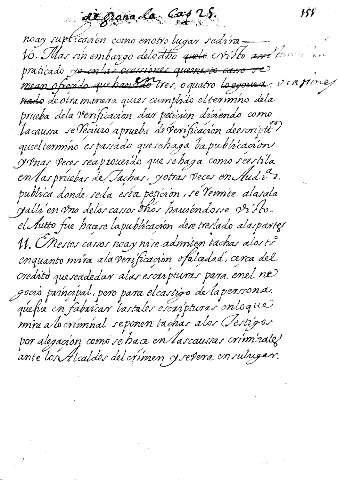 de Granada Cap 25. 151
no ay suplicacion como en otro lugar se dira
10. Mas sin embargo de lo dtho visto
praticado en las ocasiones que
en tres, o quatro
de otra manera que es cumplido el termino de la
prueba de la verificacion dar peticion diciendo como
la causa se recivio a prueba de verificacion de escriptᵃˢ
que el termino es passado que se haga la publicacion
y unas veces se a proueido que se haga como se estila
en las pruebas de Tachas, y otras veces en Audiᵃ
publica donde se da esta peticion, se remite a la sala
y alli en uno de los cassos dthos hauiendosse visto
el Autto fue hacer la publicacion de se traslado a las partes
11. En estos casos no ay ni se admiten tachas a los tˢ
en quanto mira a la verificacion o falcedad, cerca del
credito que se a de dar a las escripturas para en el ne
gocio principal, pero para el castigo de la perssona
que fue en fabricar las tales escripturas en lo que
mira a lo criminal se ponen tachas a los Testigos
por alegacion como se hace en las caussas criminales
ante los Alcaldes del crimen y se vera en su lugar.